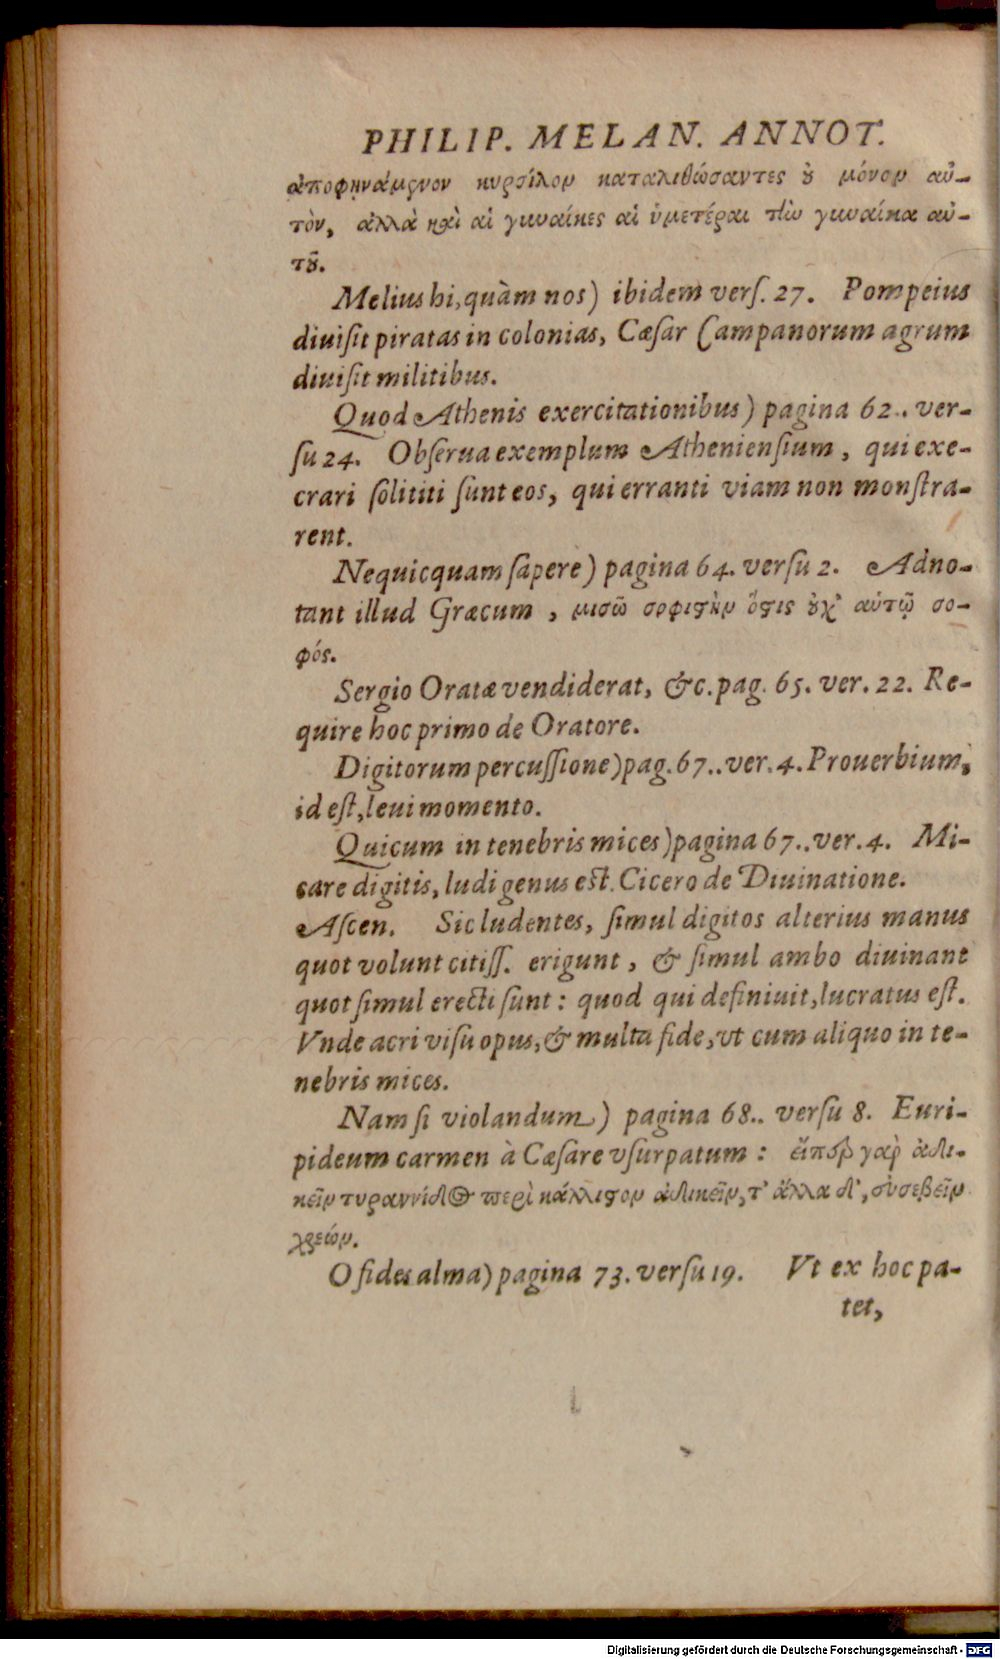 PHILIP. MELAN. ANNOT.
ἀποφηνάμενον κυρσίλον καταλιθώσαντες ȣ̓ μόνον αὐ-
τὸν, ἀλλὰ καὶ αἱ γυναίκες αἱ ὑμετέραι τὴν γυναίκα αὐ-
τȣ͂.
Melius hi, quàm nos) ibidem verſ. 27. Pompeius
diuiſit piratas in colonias, Cæſar Campanorum agrum
diuiſit militibus.
Quod Athenis exercitationibus) pagina 62.. ver-
ſu 24. Obſerua exemplum Athenienſium, qui exe-
crari ſolititi ſunt eos, qui erranti viam non monſtra-
rent.
Nequicquam ſapere) pagina 64. verſu 2. Adno-
tant illud Græcum, μισῶ σοφιστὴν ὅστις ȣ̓χ' αὑτῷ σο-
φός.
Sergio Oratæ vendiderat, &c. pag. 65. ver. 22. Re-
quire hoc primo de Oratore.
Digitorum percuſſione) pag. 67.. ver. 4. Prouerbium,
id eſt, leui momento.
Quicum in tenebris mices) pagina 67.. ver. 4. Mi-
care digitis, ludi genus eſt. Cicero de Diuinatione.
Aſcen. Sic ludentes, ſimul digitos alterius manus
quot volunt citiſſ. erigunt, & ſimul ambo diuinant
quot ſimul erecti ſunt: quod qui definiuit, lucratus eſt.
Vnde acri viſu opus, & multa fide, vt cum aliquo in te-
nebris mices.
Nam ſi violandum) pagina 68.. verſu 8. Euri-
pideum carmen à Cæſare vſurpatum: εἴπερ γὰρ ἀδι-
κεῖν τυραννίδος περὶ κάλλιστον ἀδικεῖν, τ' ἄλλα δ', εὐσεβεῖν
χρεών.
O fides alma) pagina 73. verſu 19. Vt ex hoc pa-
tet,
Digitalisierung gefördert durch die Deutsche Forschungsgemeinschaft - DFG